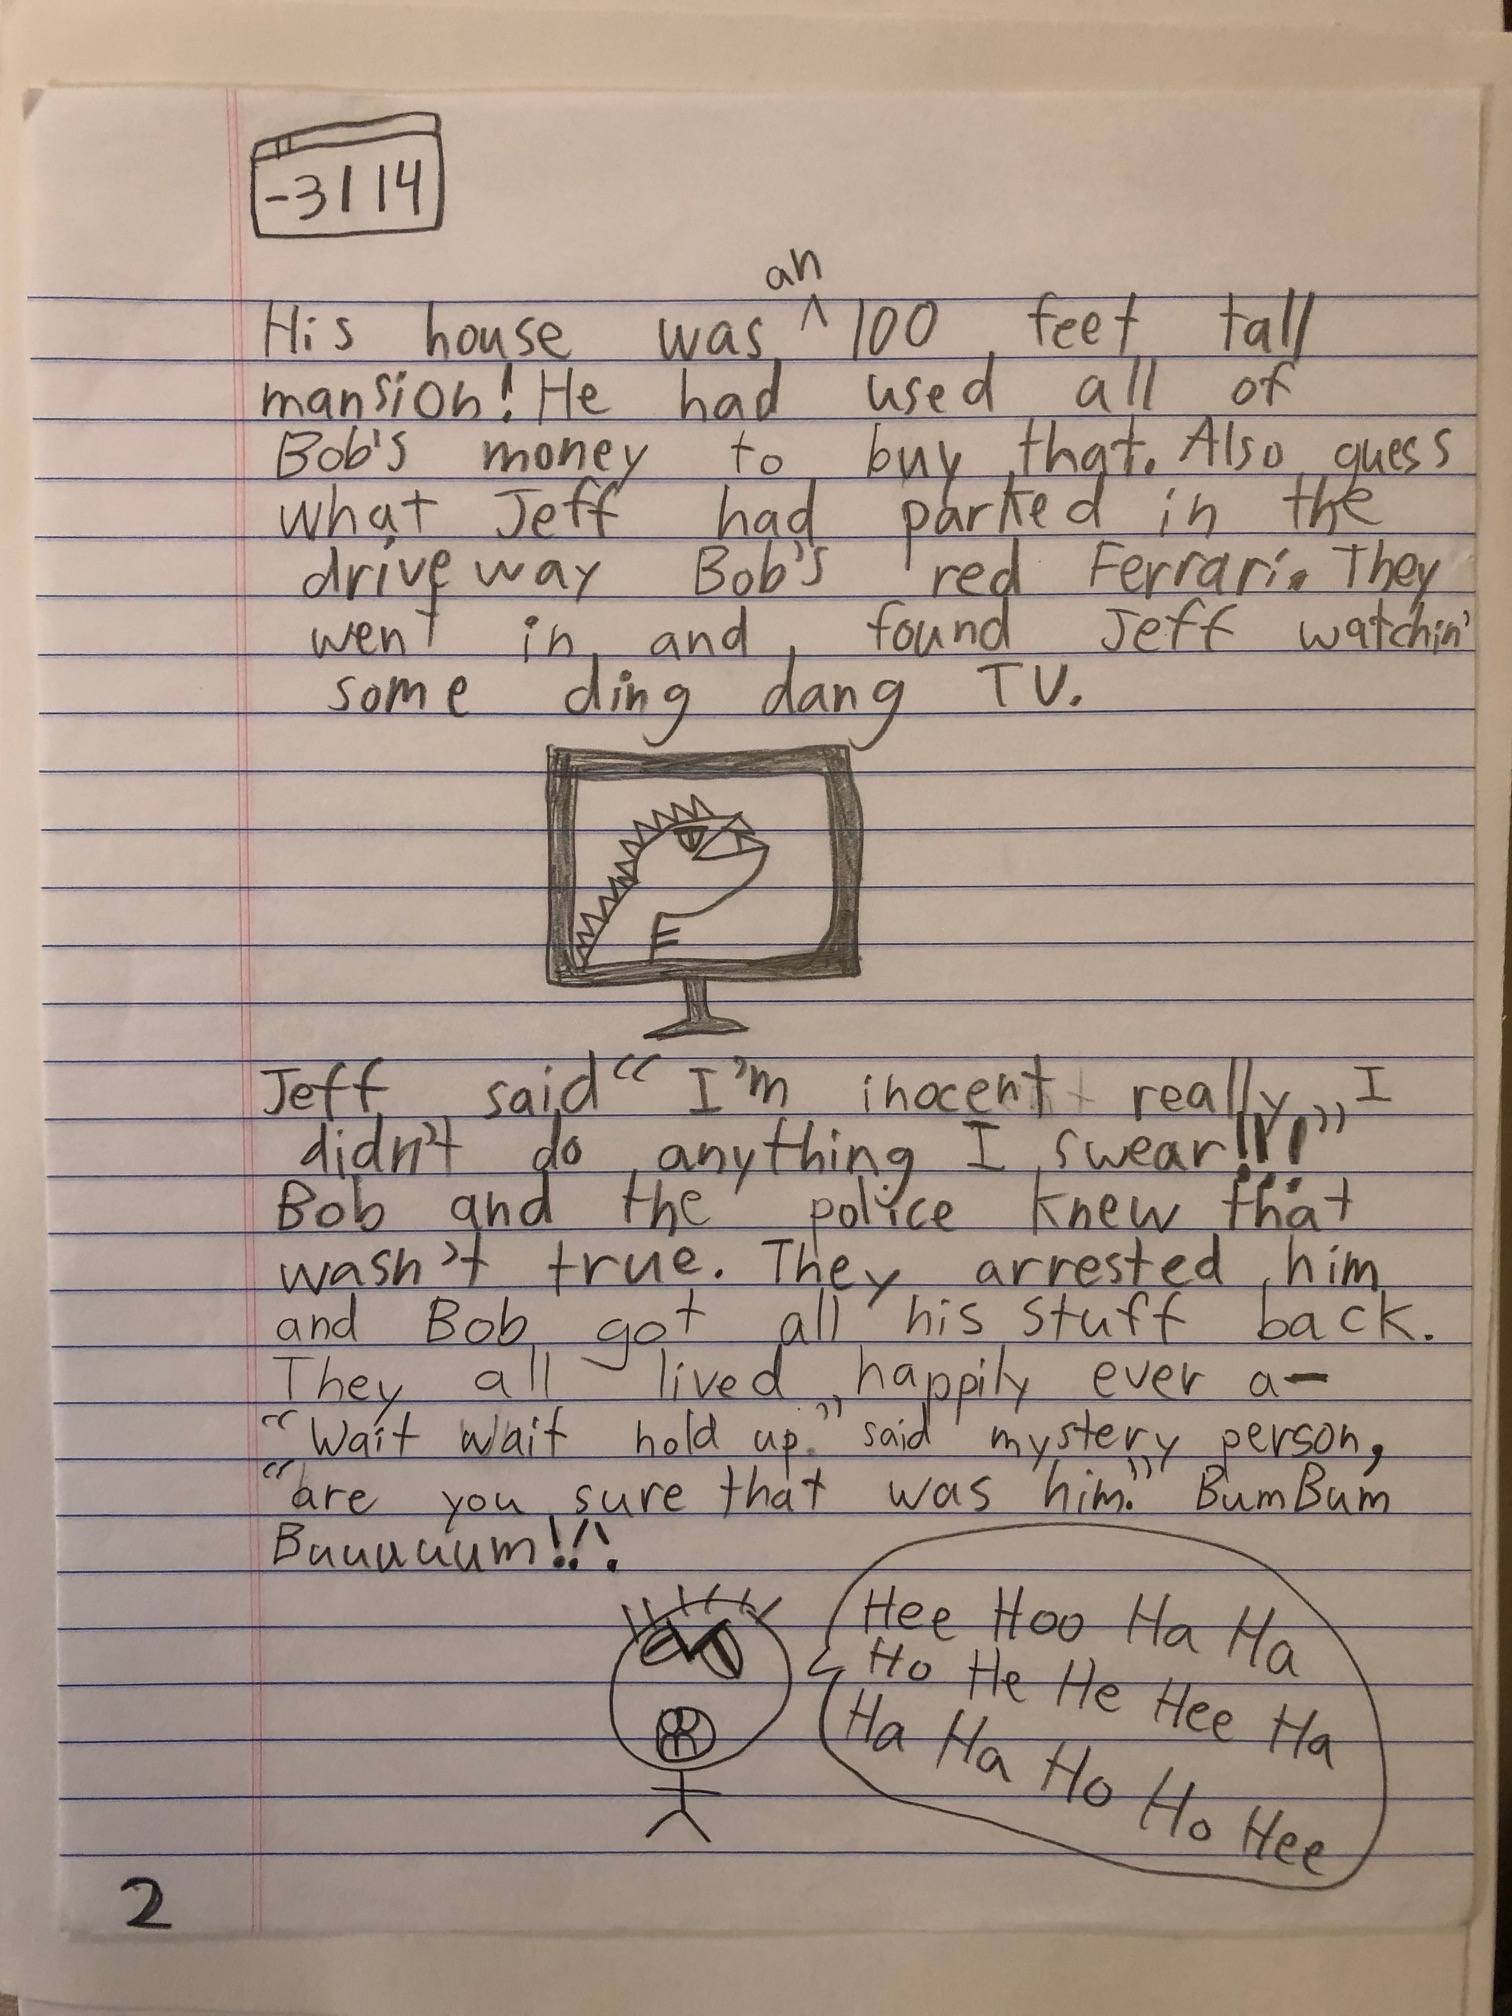 -3114
an
His house was ^ 100 feet tall
mansion! He had used all of
Bob's money to buy that. Also guess
what Jeff had parked in the
driveway Bob's red Ferrari. They
went in and found Jeff watchin'
some ding dang TV.
Jeff said "I'm inocent really, I
didn't do anything I swear!!!"
Bob and the police knew that
wasn't true. They arrested him
and Bob got all his stuff back.
They all lived happily ever a-
"Wait wait hold up." said mystery person,
"are you sure that was him." BumBum
Buuuuum!!!
Hee Hoo Ha Ha
Ho He He Hee Ha
Ha Ha Ho Ho Hee
2